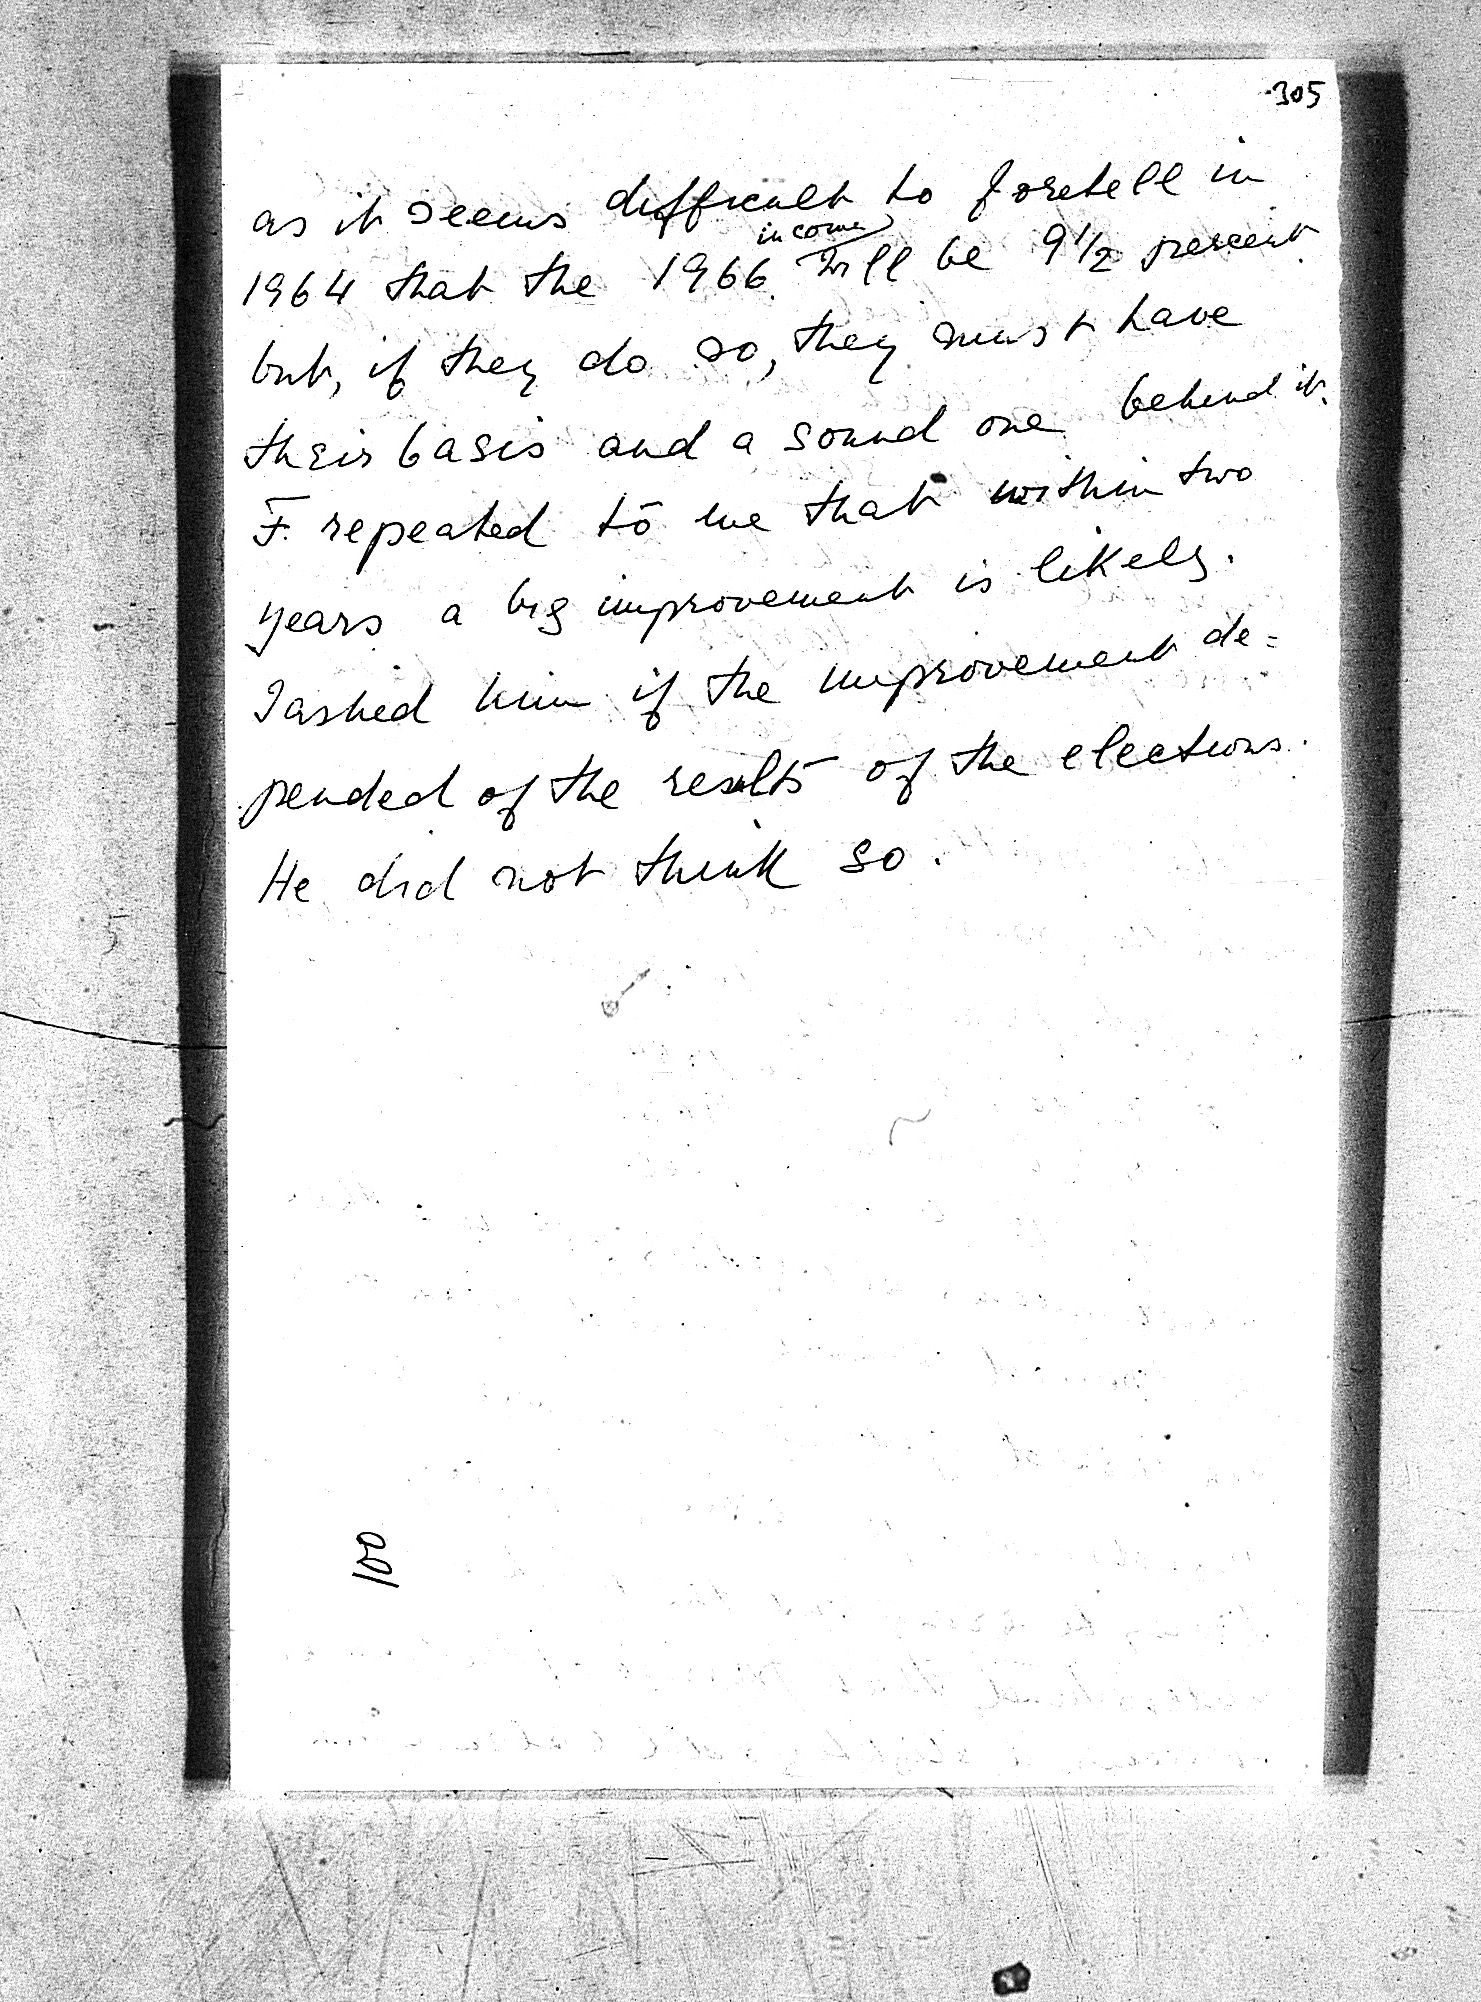 305
as it seems difficult to foretell in
income
1964 that the 1966 will be 9 1/2 percent
but, if they do so, they must have
their basis and a sound one behind it.
F. repeated to me that within two
years a big improvement is likely.
I asked him if the improvement de=
pended of the results of the elections.
He did not think so.
100